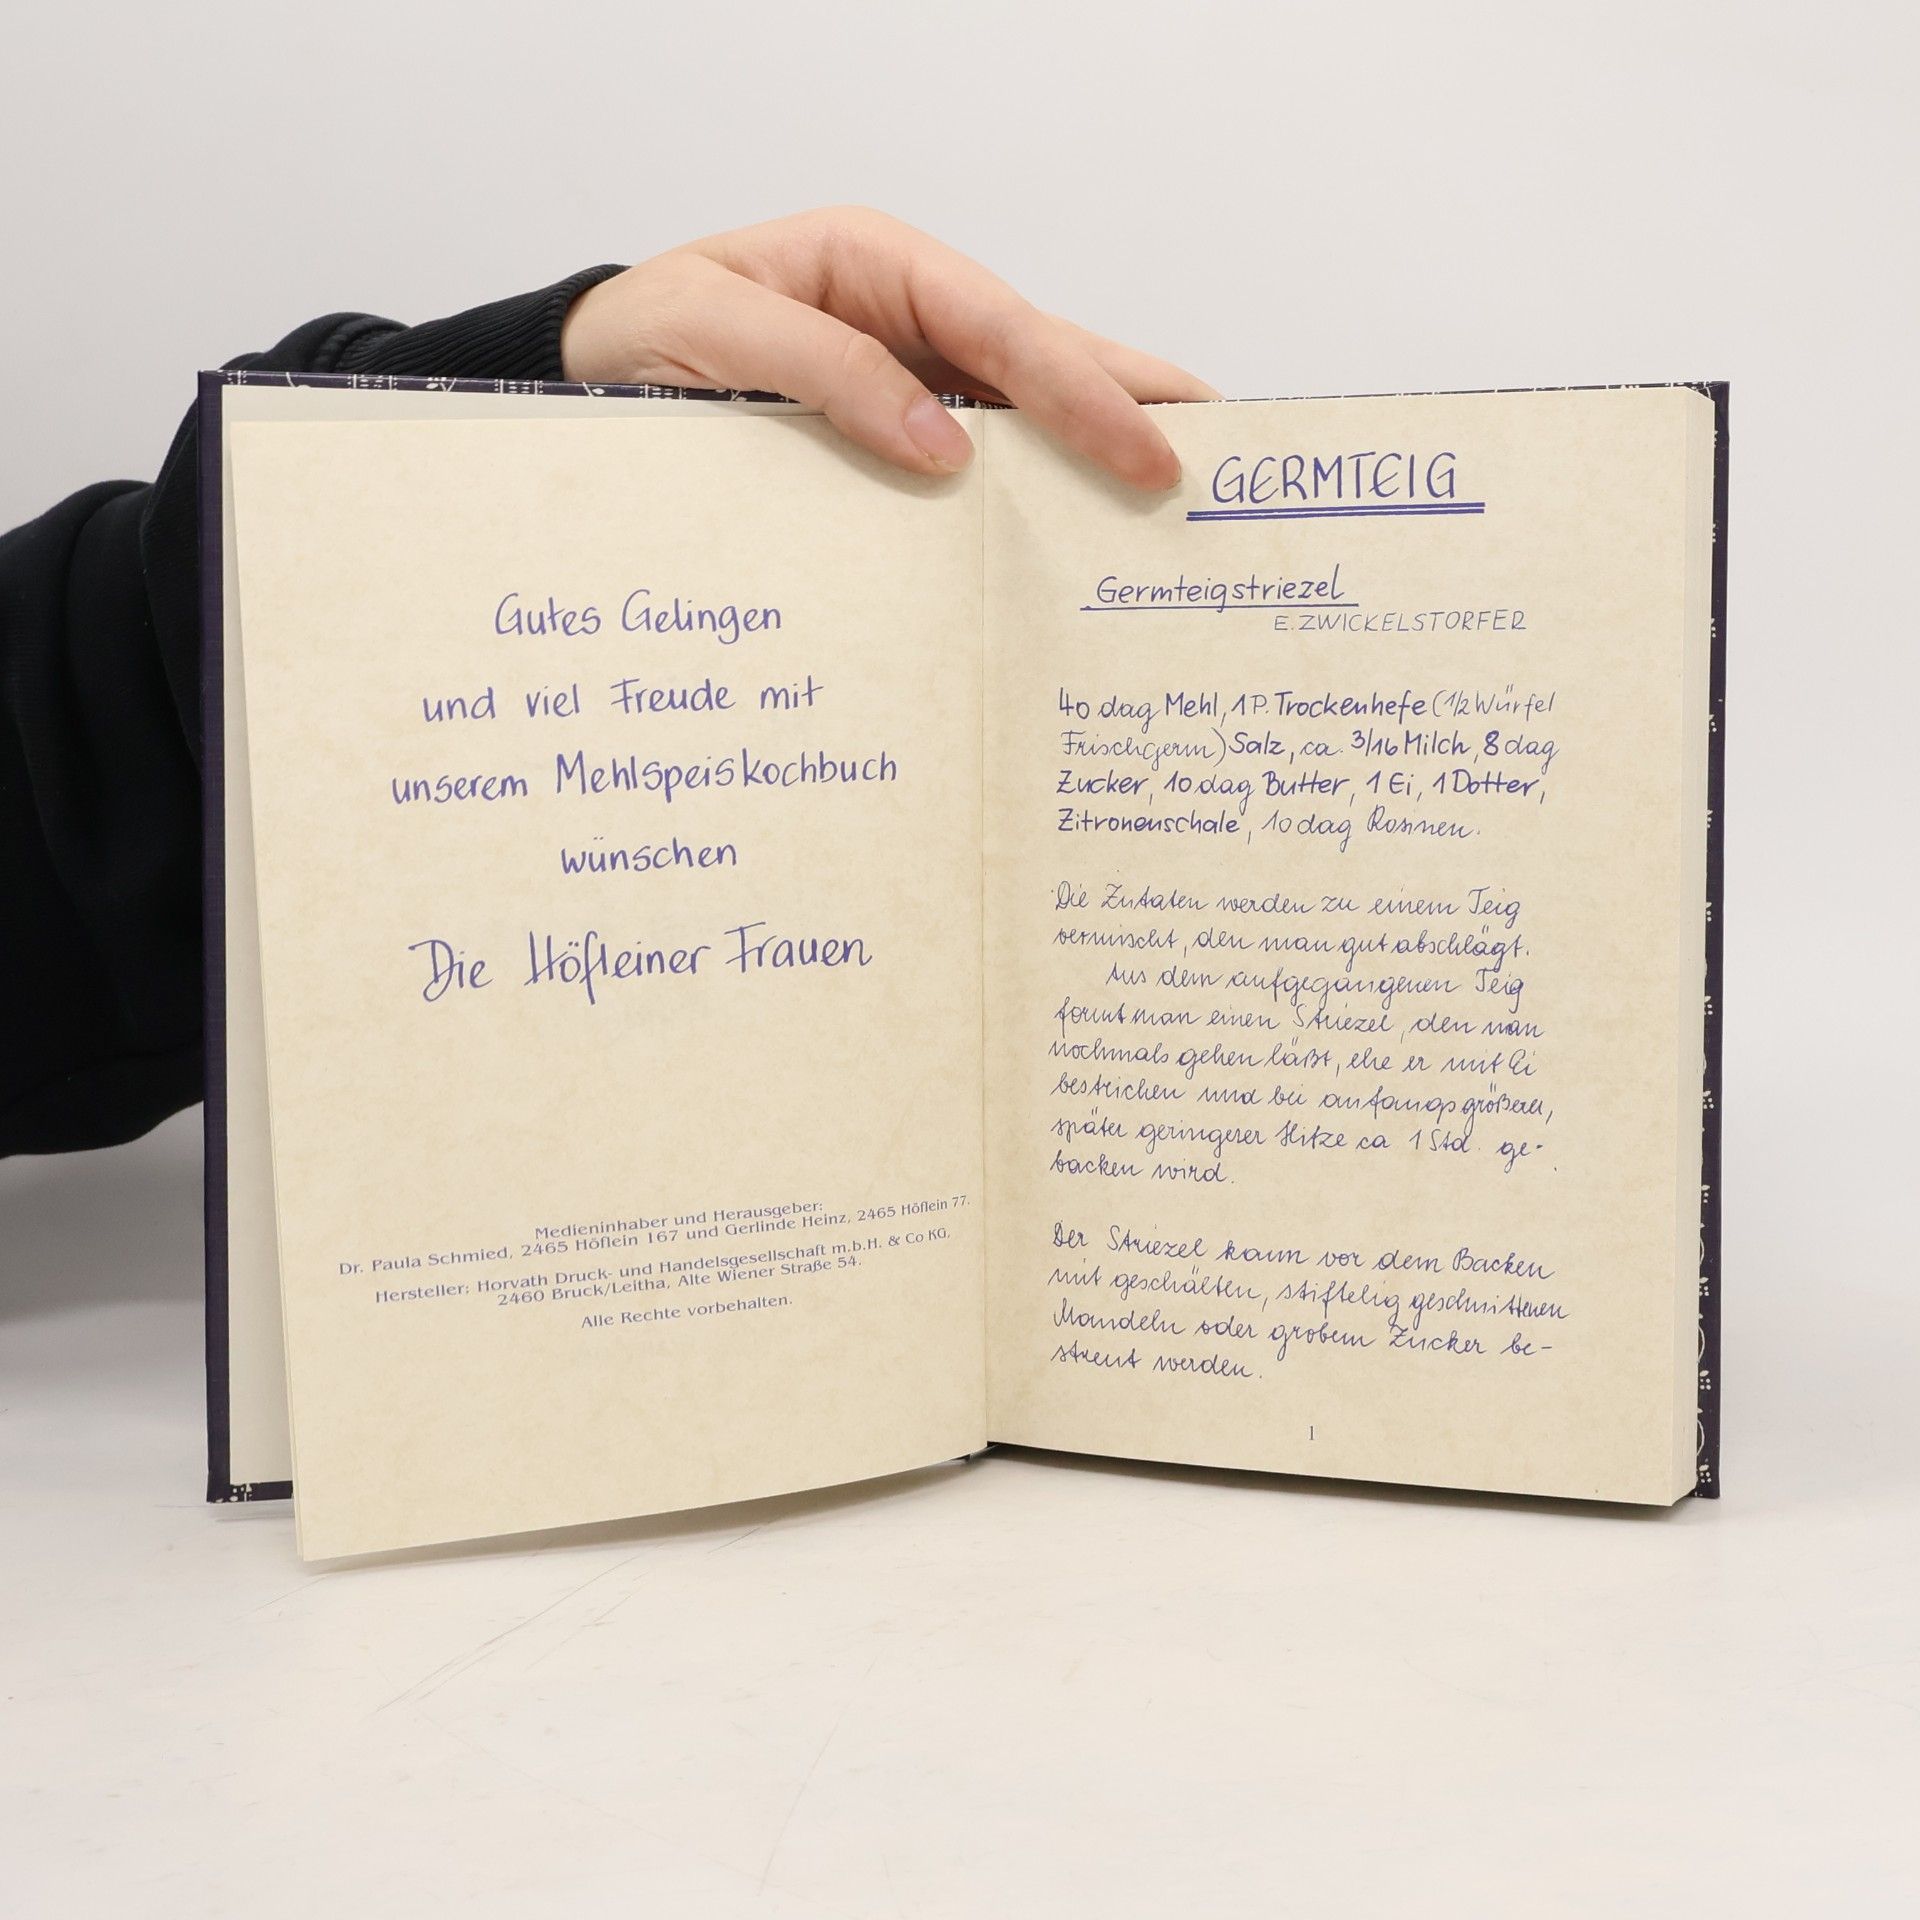 Gutes Gelingen
und viel Freude mit
unserem Mehlspeiskochbuch
wünschen
Die Höfleiner Frauen
Medieninhaber und Herausgeber:
Dr. Paula Schmied, 2465 Höflein 167 und Gerlinde Heinz, 2465 Höflein 77.
Hersteller: Horvath Druck- und Handelsgesellschaft m.b.H. & Co KG,
2460 Bruck/Leitha, Alte Wiener Straße 54.
Alle Rechte vorbehalten.
GERMTEIG
Germteigstriezel
E. ZWICKELSTORFER
40 dag Mehl, 1 P. Trockenhefe (1/2 Würfel
Frischgerm) Salz, ca. 3/16 Milch, 8 dag
Zucker, 10 dag Butter, 1 Ei, 1 Dotter,
Zitronenschale, 10 dag Rosinen.
Die Zutaten werden zu einem Teig
vermischt, den man gut abschlägt.
Aus dem aufgegangenen Teig
formt man einen Striezel, den man
nochmals gehen läßt, ehe er mit Ei
bestrichen und bei anfangs größerer,
später geringerer Hitze ca 1 Std. ge-
backen wird.
Der Striezel kann vor dem Backen
mit geschälten, stiftelig geschnittenen
Mandeln oder grobem Zucker be-
streut werden.
1